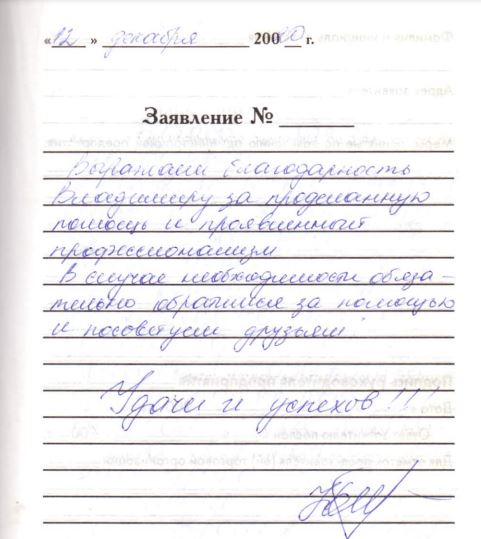 «12» декабря 20020 г.
Заявление №
Выражаем благодарность
Владимиру за проделанную
помощь и проявленный
профессионализм
В случае необходимости обяза-
тельно обратимся за помощью
и посоветуем друзьям!
Удачи и успехов!!!